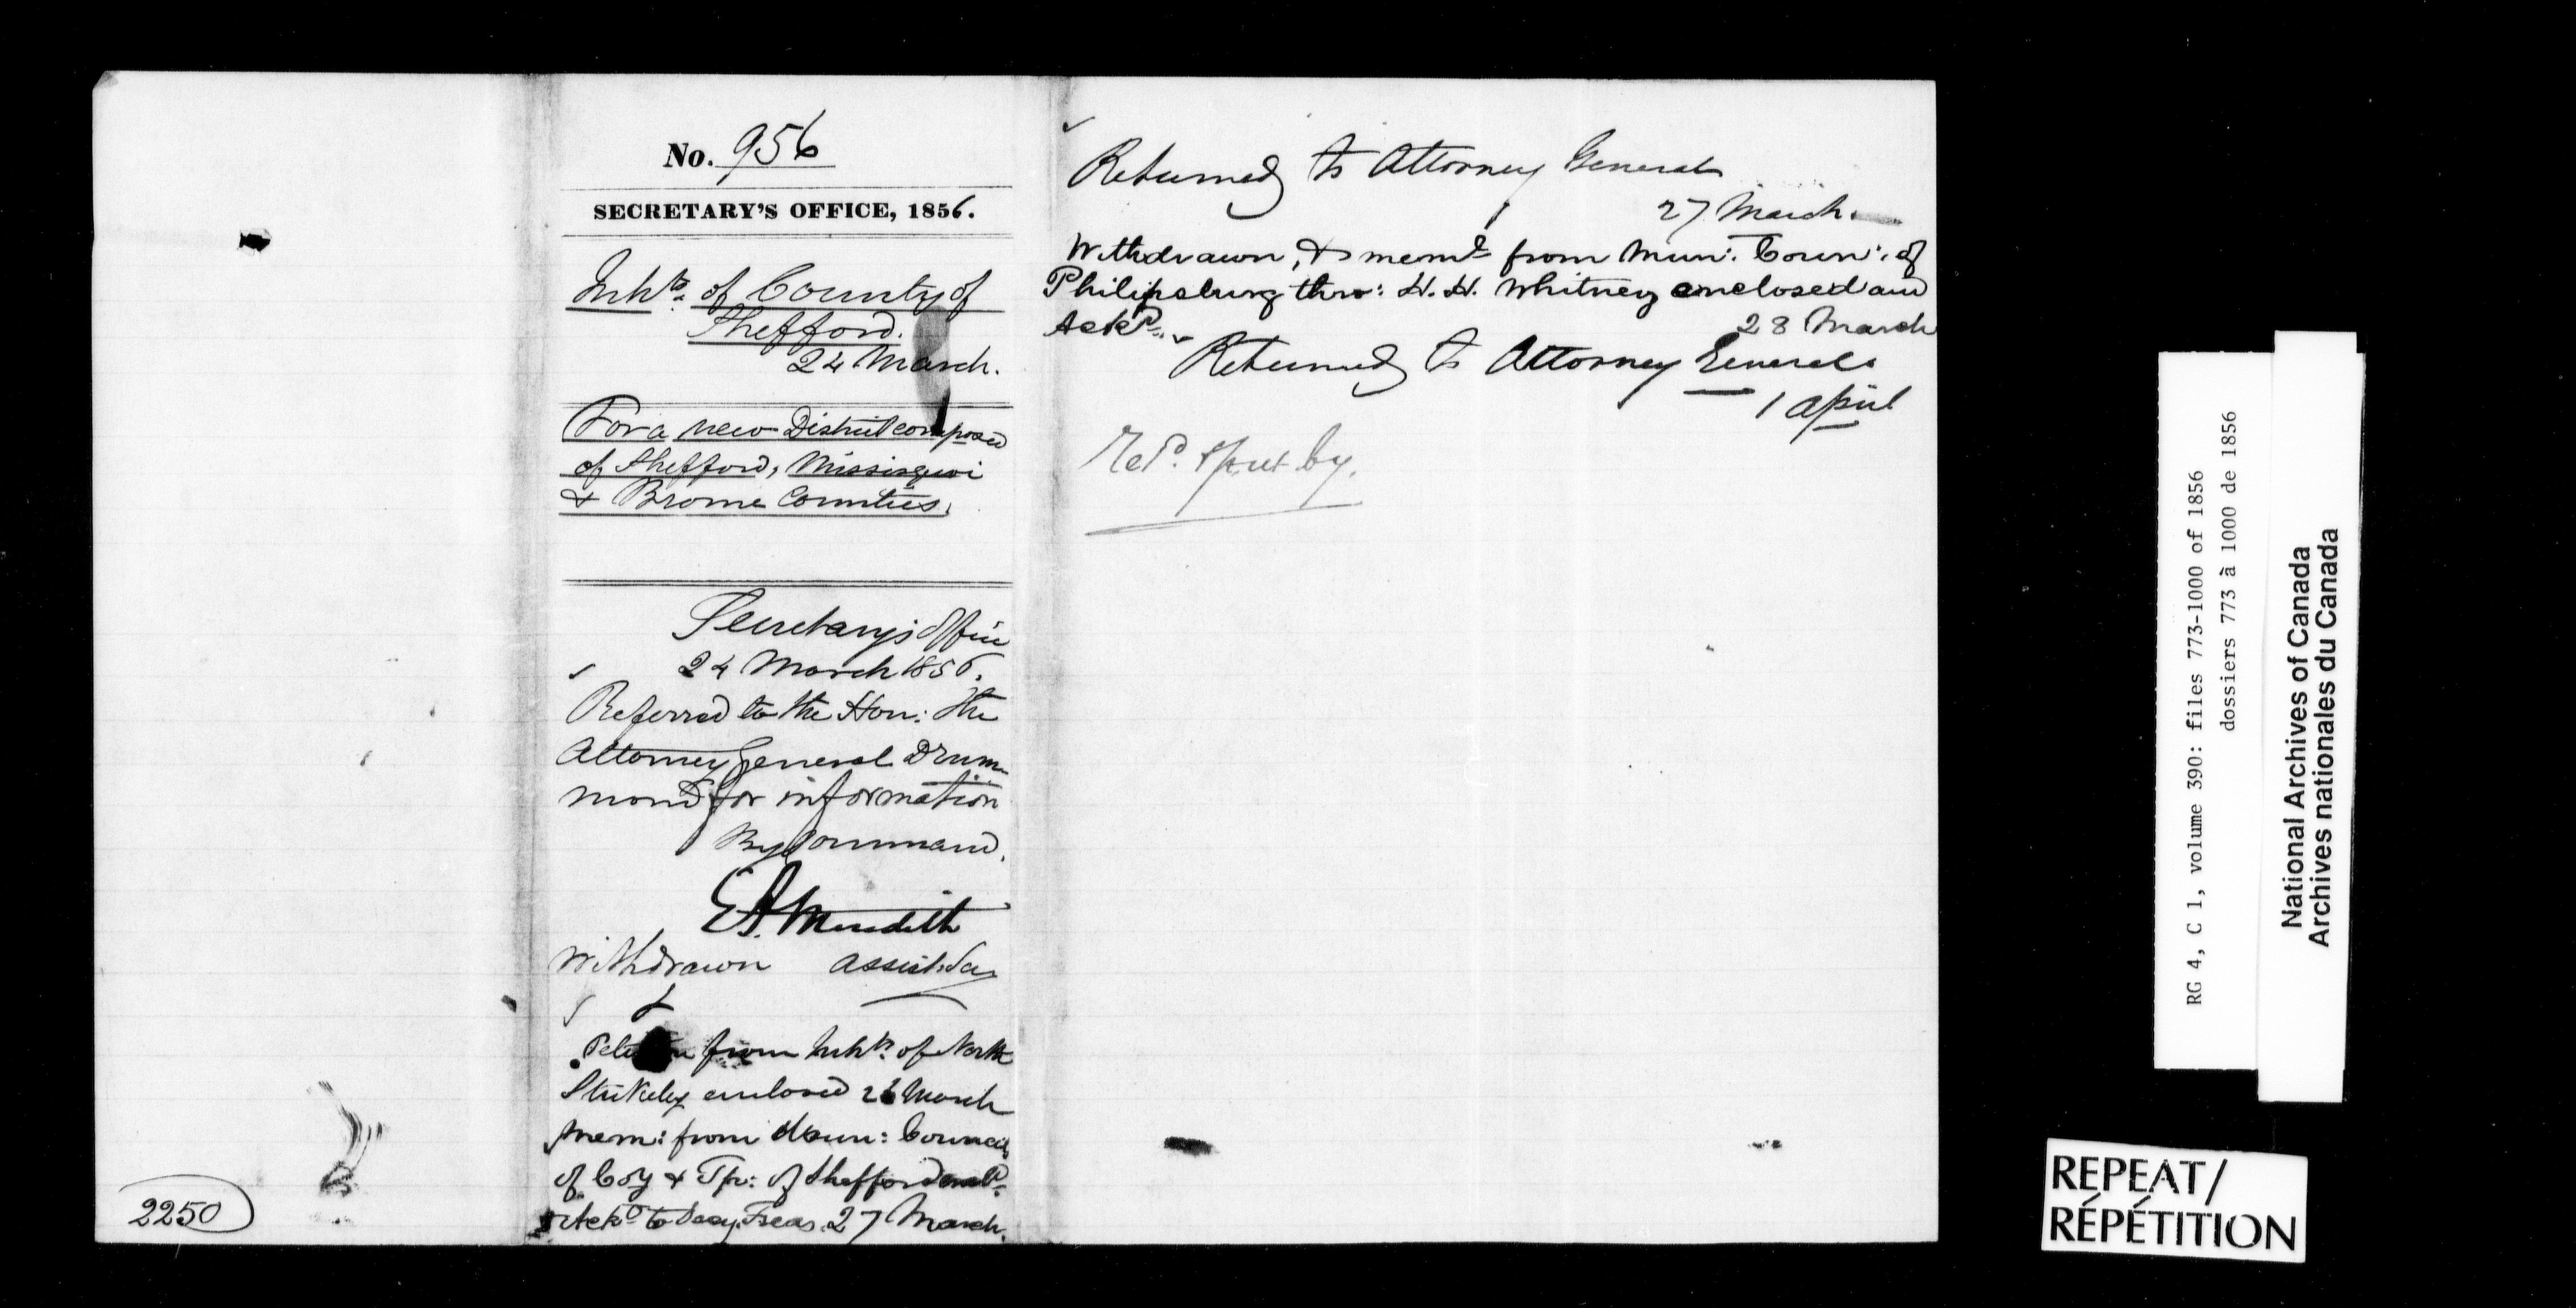 No. 956
SECRETARY'S OFFICE, 1856.
Inhts. of County of
Shefford.
24 March.
For a new District composed
of Shefford, Missisquoi
& Brome Counties.
Secretary's Office
24 March 1856.
Referred to the Hon: the
Attorney General Drum-
mond for information
By Command.
E A Meredith
Withdrawn Assist. Sec
&
Petition from Inhts. of North
Stukely enclosed 26 March
Mem: from Mun: Council
of Coy & Tp: of Shefford encd.
& Ackd to Secy Treas. 27 March.
2250
Returned to Attorney General
27 March.
Withdrawn, & meml from Mun: Coun: of
Philipsburg thro: H. H. Whitney enclosed and
Ackd. 28 March
Returned to Attorney General
1 April
Recd. & put by.
RG 4, C 1, volume 390: files 773-1000 of 1856
dossiers 773 à 1000 de 1856
National Archives of Canada
Archives nationales du Canada
REPEAT/
RÉPÉTITION